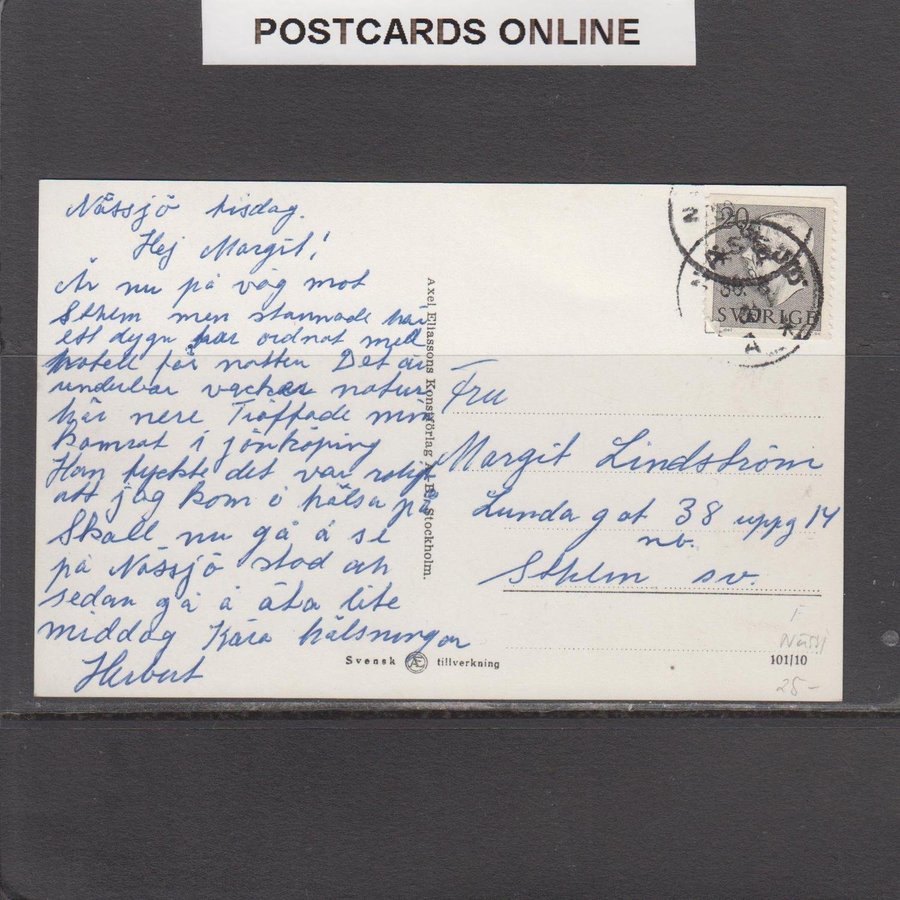 POSTCARDS ONLINE
Nässjö tisdag.
Hej Margit!
Är nu på väg mot
Sthlm men stannade här
ett dygn har ordnat med
hotell för natten Det är
underbar vacker natur
här nere Träffade min
kamrat i jönköping
Han tyckte det var roligt
att jag kom o hälsa på
Skall nu gå å se
på Nässjö stad och
sedan gå å äta lite
middag Kära hälsningar
Herbert
Axel Eliassons Konstförlag A.-B., Stockholm.
20
SVERIGE
Fru
Margit Lindström
Lundagat 38 uppg 14
nb.
Sthlm sv.
Svensk Æ tillverkning
101/10
25-